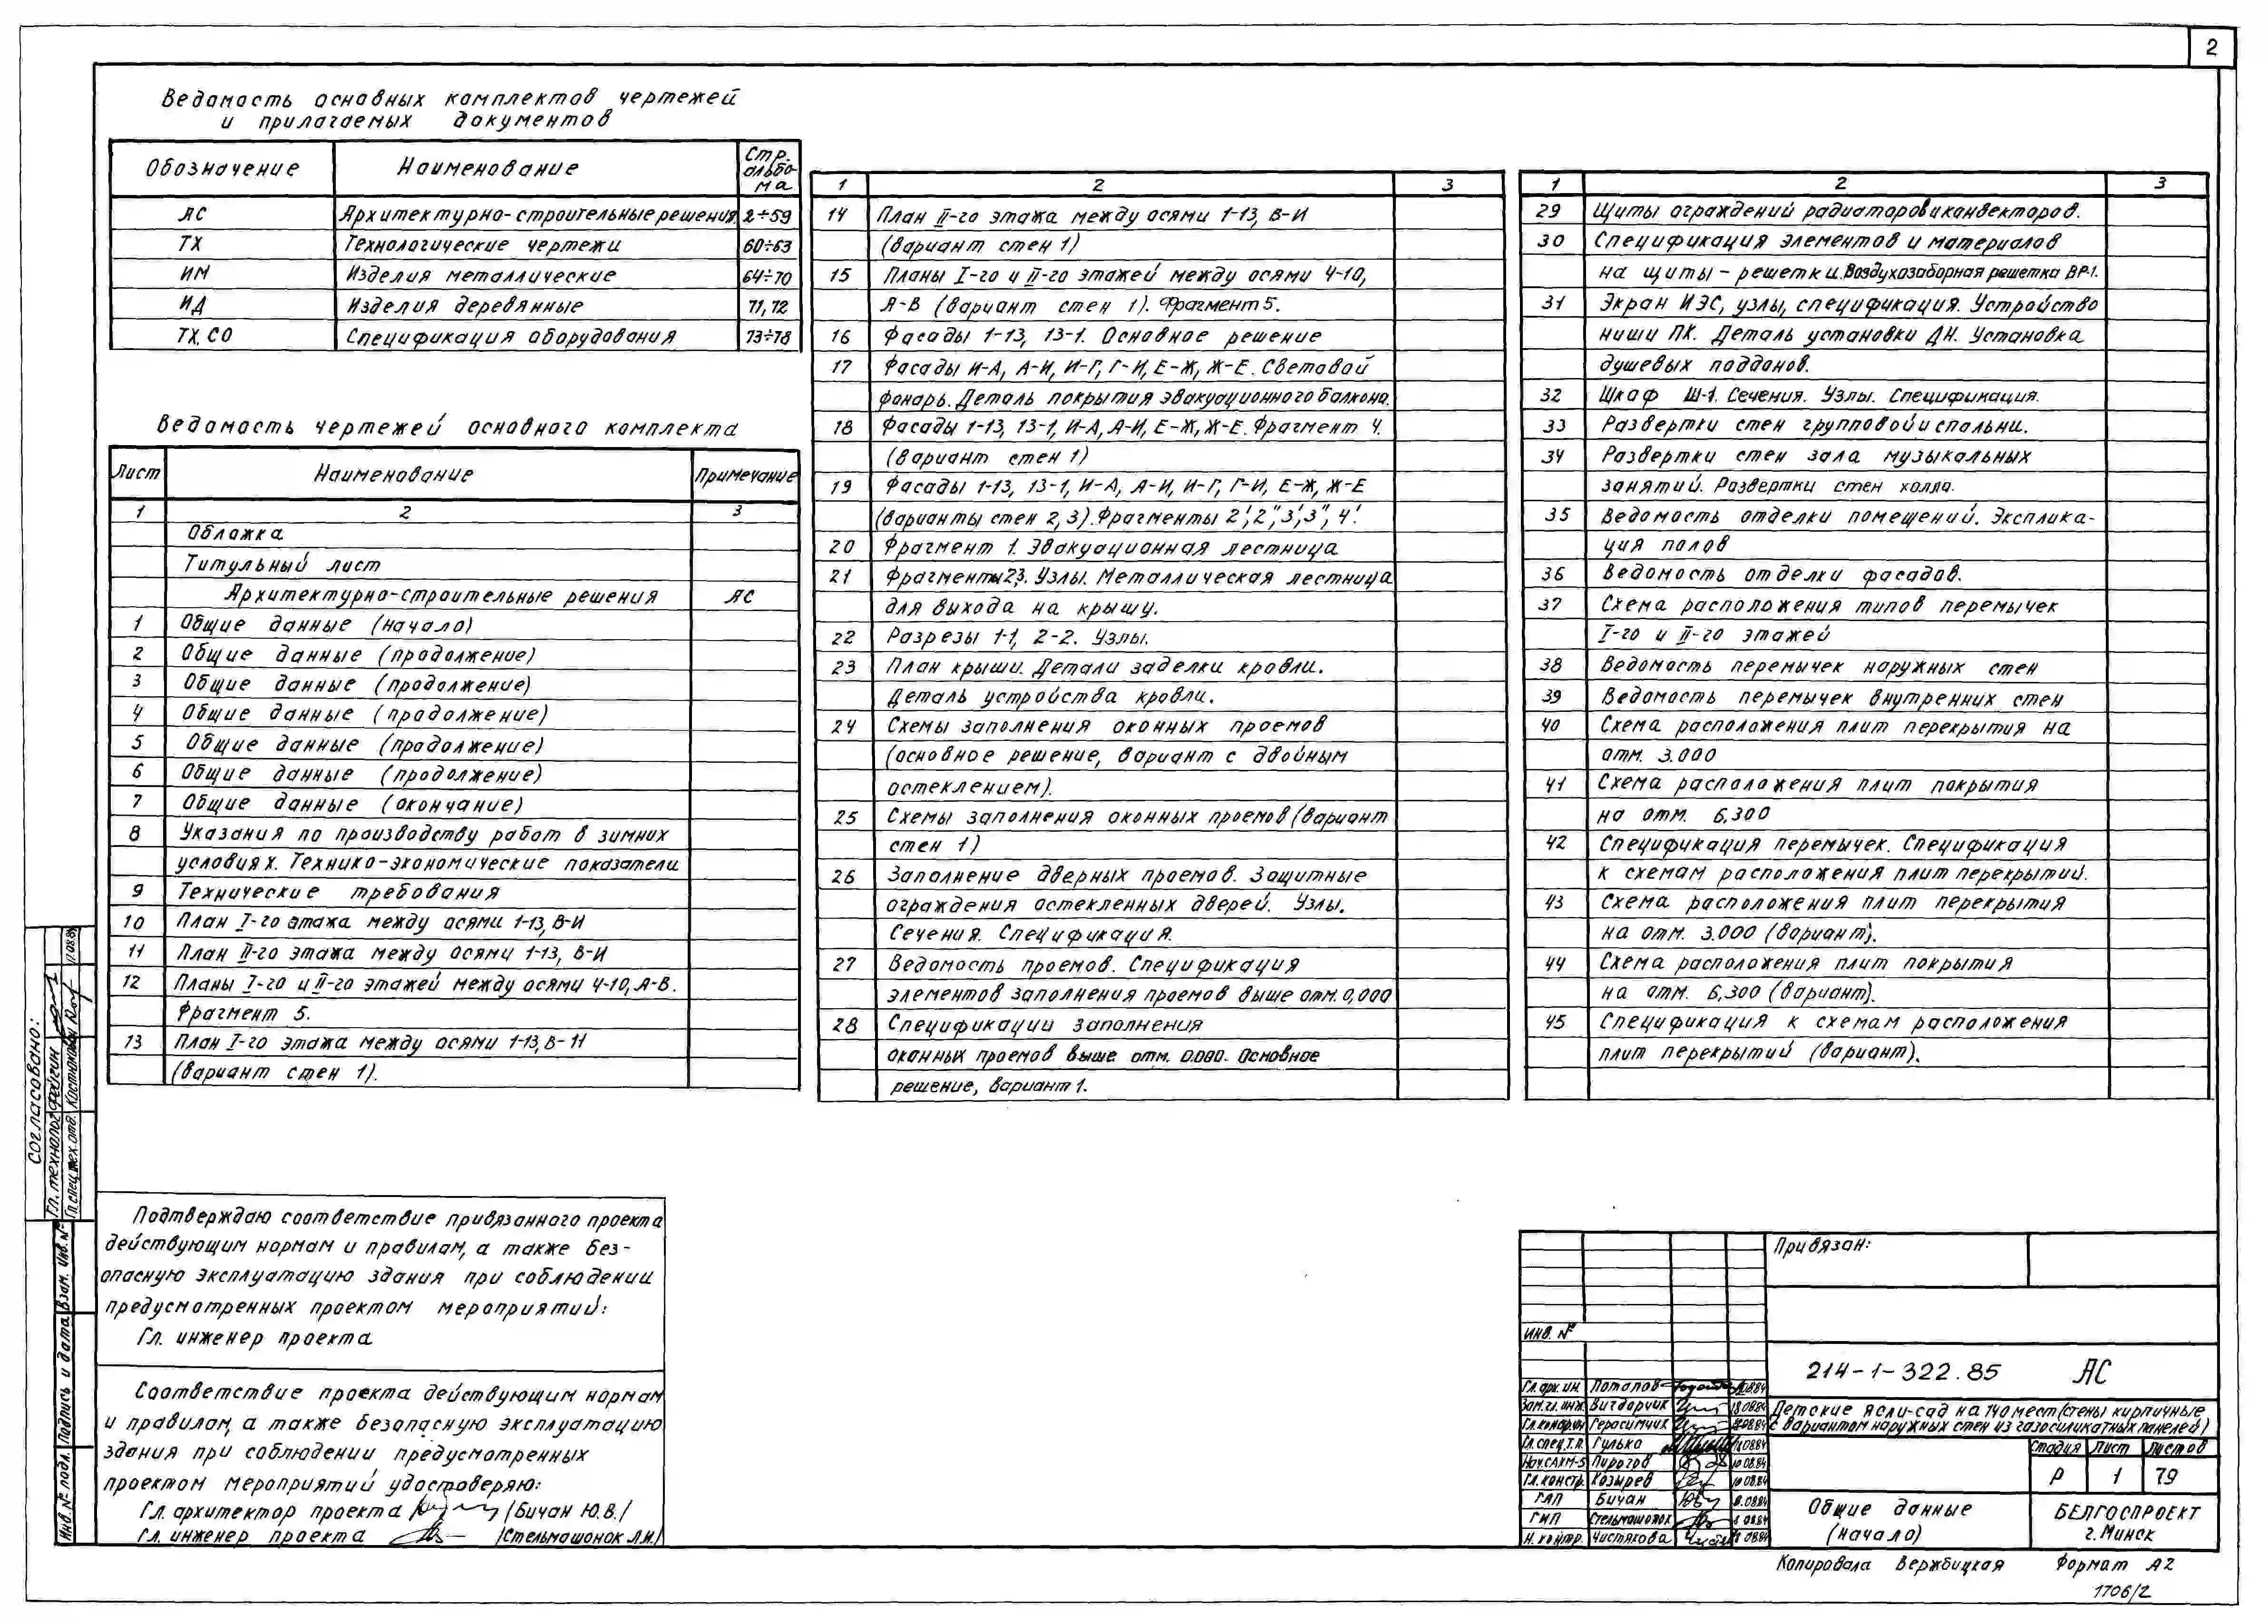 2
Ведомость основных комплектов чертежей
и прилагаемых документов
Обозначение Наименование Стр. альбома
АС Архитектурно-строительные решения. 2÷59
ТХ Технологические чертежи 60÷63
ИМ Изделия металлические 64÷70
ИД Изделия деревянные 71, 72
ТХ.СО Спецификация оборудования 73÷78
Ведомость чертежей основного комплекта
Лист Наименование Примечание
1 2 3
Обложка
Титульный лист
Архитектурно-строительные решения АС
1 Общие данные (начало)
2 Общие данные (продолжение)
3 Общие данные (продолжение)
4 Общие данные (продолжение)
5 Общие данные (продолжение)
6 Общие данные (продолжение)
7 Общие данные (окончание)
8 Указания по производству работ в зимних
условиях. Технико-экономические показатели
9 Технические требования
10 План I-го этажа между осями 1-13, В-И
11 План II-го этажа между осями 1-13, В-И
12 Планы I-го и II-го этажей между осями 4-10, А-В.
Фрагмент 5.
13 План I-го этажа между осями 1-13, В-И
(вариант стен 1).
1 2 3
14 План II-го этажа между осями 1-13, В-И
(вариант стен 1)
15 Планы I-го и II-го этажей между осями 4-10,
А-В (вариант стен 1). Фрагмент 5.
16 Фасады 1-13, 13-1. Основное решение
17 Фасады И-А, А-И, И-Г, Г-И, Е-Ж, Ж-Е. Световой
фонарь. Деталь покрытия эвакуационного балкона.
18 Фасады 1-13, 13-1, И-А, А-И, Е-Ж, Ж-Е. Фрагмент 4.
(вариант стен 1)
19 Фасады 1-13, 13-1, И-А, А-И, И-Г, Г-И, Е-Ж, Ж-Е
(варианты стен 2, 3). Фрагменты 2', 2", 3', 3", 4'.
20 Фрагмент 1. Эвакуационная лестница
21 Фрагменты 2,3. Узлы. Металлическая лестница
для выхода на крышу.
22 Разрезы 1-1, 2-2. Узлы.
23 План крыши. Детали заделки кровли.
Деталь устройства кровли.
24 Схемы заполнения оконных проемов
(основное решение, вариант с двойным
остеклением).
25 Схемы заполнения оконных проемов (вариант
стен 1)
26 Заполнение дверных проемов. Защитные
ограждения остекленных дверей. Узлы.
Сечения. Спецификация.
27 Ведомость проемов. Спецификация
элементов заполнения проемов выше отм. 0,000
28 Спецификации заполнения
оконных проемов выше отм. 0.000. Основное
решение, вариант 1.
1 2 3
29 Щиты ограждений радиаторов и конвекторов.
30 Спецификация элементов и материалов
на щиты-решетки. Воздухозаборная решетка ВР-1.
31 Экран ИЭС, узлы, спецификация. Устройство
ниши ПК. Деталь установки ДН. Установка
душевых поддонов.
32 Шкаф Ш-1. Сечения. Узлы. Спецификация.
33 Развертки стен групповой и спальни.
34 Развертки стен зала музыкальных
занятий. Развертки стен холла.
35 Ведомость отделки помещений. Эксплика-
ция полов
36 Ведомость отделки фасадов.
37 Схема расположения типов перемычек
I-го и II-го этажей
38 Ведомость перемычек наружных стен
39 Ведомость перемычек внутренних стен
40 Схема расположения плит перекрытия на
отм. 3.000
41 Схема расположения плит покрытия
на отм. 6,300
42 Спецификация перемычек. Спецификация
к схемам расположения плит перекрытий.
43 Схема расположения плит перекрытия
на отм. 3.000 (вариант).
44 Схема расположения плит покрытия
на отм. 6,300 (вариант).
45 Спецификация к схемам расположения
плит перекрытий (вариант).
Согласовано:
Гл. технолог Файгин
Гл. спец. тех. отд.
Взам. инв. №
Подпись и дата
Инв. № подл.
Подтверждаю соответствие привязанного проекта
действующим нормам и правилам, а также без-
опасную эксплуатацию здания при соблюдении
предусмотренных проектом мероприятий:
Гл. инженер проекта
Соответствие проекта действующим нормам
и правилам, а также безопасную эксплуатацию
здания при соблюдении предусмотренных
проектом мероприятий удостоверяю:
Гл. архитектор проекта /Бичан Ю.В./
Гл. инженер проекта /Стельмашонок Л.И./
Привязан:
Инв. №
214-1-322.85 АС
Гл. арх. ин. Потапов
Зам. гл. инж. Вигдорчик
Гл. конс. Герасимчик
Гл. спец. Т.П. Гулько
Нач. САКМ-5 Пирогов 10.08.84
Гл. констр. Козырев 10.08.84
ГАП Бичан
ГИП Стельмашонок
Н. контр. Чистякова
Детские ясли-сад на 140 мест (стены кирпичные
с вариантом наружных стен из газосиликатных панелей)
Стадия Лист Листов
Р 1 79
Общие данные
(начало)
БЕЛГОСПРОЕКТ
г. Минск
Копировала Вержбицкая Формат А2
1706/2